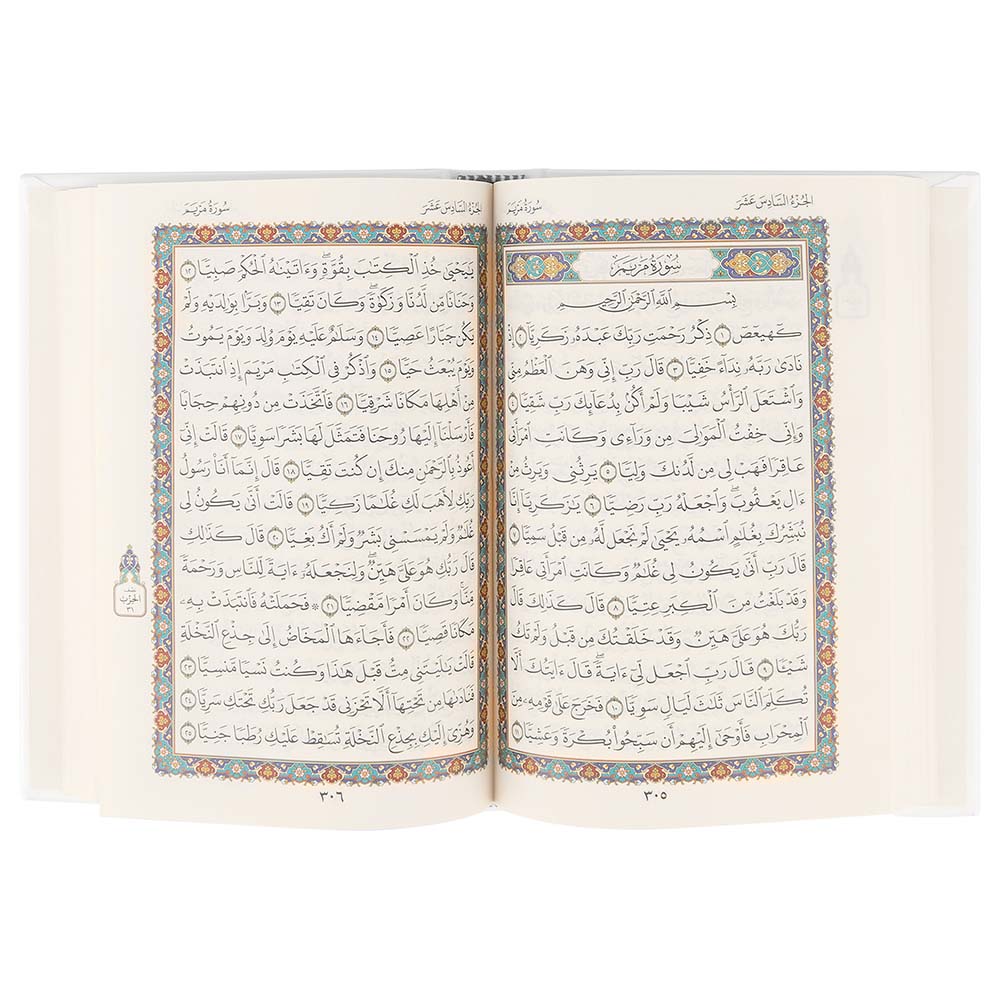 الجزء السادس عشر
سورة مريم
سُورَةُ مَرْيَمَ
بِسْمِ اللَّهِ الرَّحْمَٰنِ الرَّحِيمِ
كٓهيعٓصٓ ١ ذِكْرُ رَحْمَتِ رَبِّكَ عَبْدَهُۥ زَكَرِيَّآ ٢ إِذْ
نَادَىٰ رَبَّهُۥ نِدَآءً خَفِيًّا ٣ قَالَ رَبِّ إِنِّى وَهَنَ ٱلْعَظْمُ مِنِّى
وَٱشْتَعَلَ ٱلرَّأْسُ شَيْبًا وَلَمْ أَكُنۢ بِدُعَآئِكَ رَبِّ شَقِيًّا ٤
وَإِنِّى خِفْتُ ٱلْمَوَٰلِىَ مِن وَرَآءِى وَكَانَتِ ٱمْرَأَتِى
عَاقِرًا فَهَبْ لِى مِن لَّدُنكَ وَلِيًّا ٥ يَرِثُنِى وَيَرِثُ مِنْ
ءَالِ يَعْقُوبَ ۖ وَٱجْعَلْهُ رَبِّ رَضِيًّا ٦ يَٰزَكَرِيَّآ إِنَّا
نُبَشِّرُكَ بِغُلَٰمٍ ٱسْمُهُۥ يَحْيَىٰ لَمْ نَجْعَل لَّهُۥ مِن قَبْلُ سَمِيًّا ٧
قَالَ رَبِّ أَنَّىٰ يَكُونُ لِى غُلَٰمٌ وَكَانَتِ ٱمْرَأَتِى عَاقِرًا
وَقَدْ بَلَغْتُ مِنَ ٱلْكِبَرِ عِتِيًّا ٨ قَالَ كَذَٰلِكَ قَالَ
رَبُّكَ هُوَ عَلَىَّ هَيِّنٌ وَقَدْ خَلَقْتُكَ مِن قَبْلُ وَلَمْ تَكُ
شَيْـًٔا ٩ قَالَ رَبِّ ٱجْعَل لِّىٓ ءَايَةً ۚ قَالَ ءَايَتُكَ أَلَّا
تُكَلِّمَ ٱلنَّاسَ ثَلَٰثَ لَيَالٍ سَوِيًّا ١٠ فَخَرَجَ عَلَىٰ قَوْمِهِۦ مِنَ
ٱلْمِحْرَابِ فَأَوْحَىٰٓ إِلَيْهِمْ أَن سَبِّحُوا۟ بُكْرَةً وَعَشِيًّا ١١
٣٠٥
الجزء السادس عشر
سورة مريم
يَٰيَحْيَىٰ خُذِ ٱلْكِتَٰبَ بِقُوَّةٍ ۖ وَءَاتَيْنَٰهُ ٱلْحُكْمَ صَبِيًّا ١٢
وَحَنَانًا مِّن لَّدُنَّا وَزَكَوٰةً ۖ وَكَانَ تَقِيًّا ١٣ وَبَرًّۢا بِوَٰلِدَيْهِ وَلَمْ
يَكُن جَبَّارًا عَصِيًّا ١٤ وَسَلَٰمٌ عَلَيْهِ يَوْمَ وُلِدَ وَيَوْمَ يَمُوتُ
وَيَوْمَ يُبْعَثُ حَيًّا ١٥ وَٱذْكُرْ فِى ٱلْكِتَٰبِ مَرْيَمَ إِذِ ٱنتَبَذَتْ
مِنْ أَهْلِهَا مَكَانًا شَرْقِيًّا ١٦ فَٱتَّخَذَتْ مِن دُونِهِمْ حِجَابًا
فَأَرْسَلْنَآ إِلَيْهَا رُوحَنَا فَتَمَثَّلَ لَهَا بَشَرًا سَوِيًّا ١٧ قَالَتْ إِنِّىٓ
أَعُوذُ بِٱلرَّحْمَٰنِ مِنكَ إِن كُنتَ تَقِيًّا ١٨ قَالَ إِنَّمَآ أَنَا۠ رَسُولُ
رَبِّكِ لِأَهَبَ لَكِ غُلَٰمًا زَكِيًّا ١٩ قَالَتْ أَنَّىٰ يَكُونُ لِى
غُلَٰمٌ وَلَمْ يَمْسَسْنِى بَشَرٌ وَلَمْ أَكُ بَغِيًّا ٢٠ قَالَ كَذَٰلِكِ
قَالَ رَبُّكِ هُوَ عَلَىَّ هَيِّنٌ ۖ وَلِنَجْعَلَهُۥٓ ءَايَةً لِّلنَّاسِ وَرَحْمَةً
مِّنَّا ۚ وَكَانَ أَمْرًا مَّقْضِيًّا ٢١ ۞ فَحَمَلَتْهُ فَٱنتَبَذَتْ بِهِۦ
مَكَانًا قَصِيًّا ٢٢ فَأَجَآءَهَا ٱلْمَخَاضُ إِلَىٰ جِذْعِ ٱلنَّخْلَةِ
قَالَتْ يَٰلَيْتَنِى مِتُّ قَبْلَ هَٰذَا وَكُنتُ نَسْيًا مَّنسِيًّا ٢٣
فَنَادَىٰهَا مِن تَحْتِهَآ أَلَّا تَحْزَنِى قَدْ جَعَلَ رَبُّكِ تَحْتَكِ سَرِيًّا ٢٤
وَهُزِّىٓ إِلَيْكِ بِجِذْعِ ٱلنَّخْلَةِ تُسَٰقِطْ عَلَيْكِ رُطَبًا جَنِيًّا ٢٥
نصف
الحزب
٣١
٣٠٦